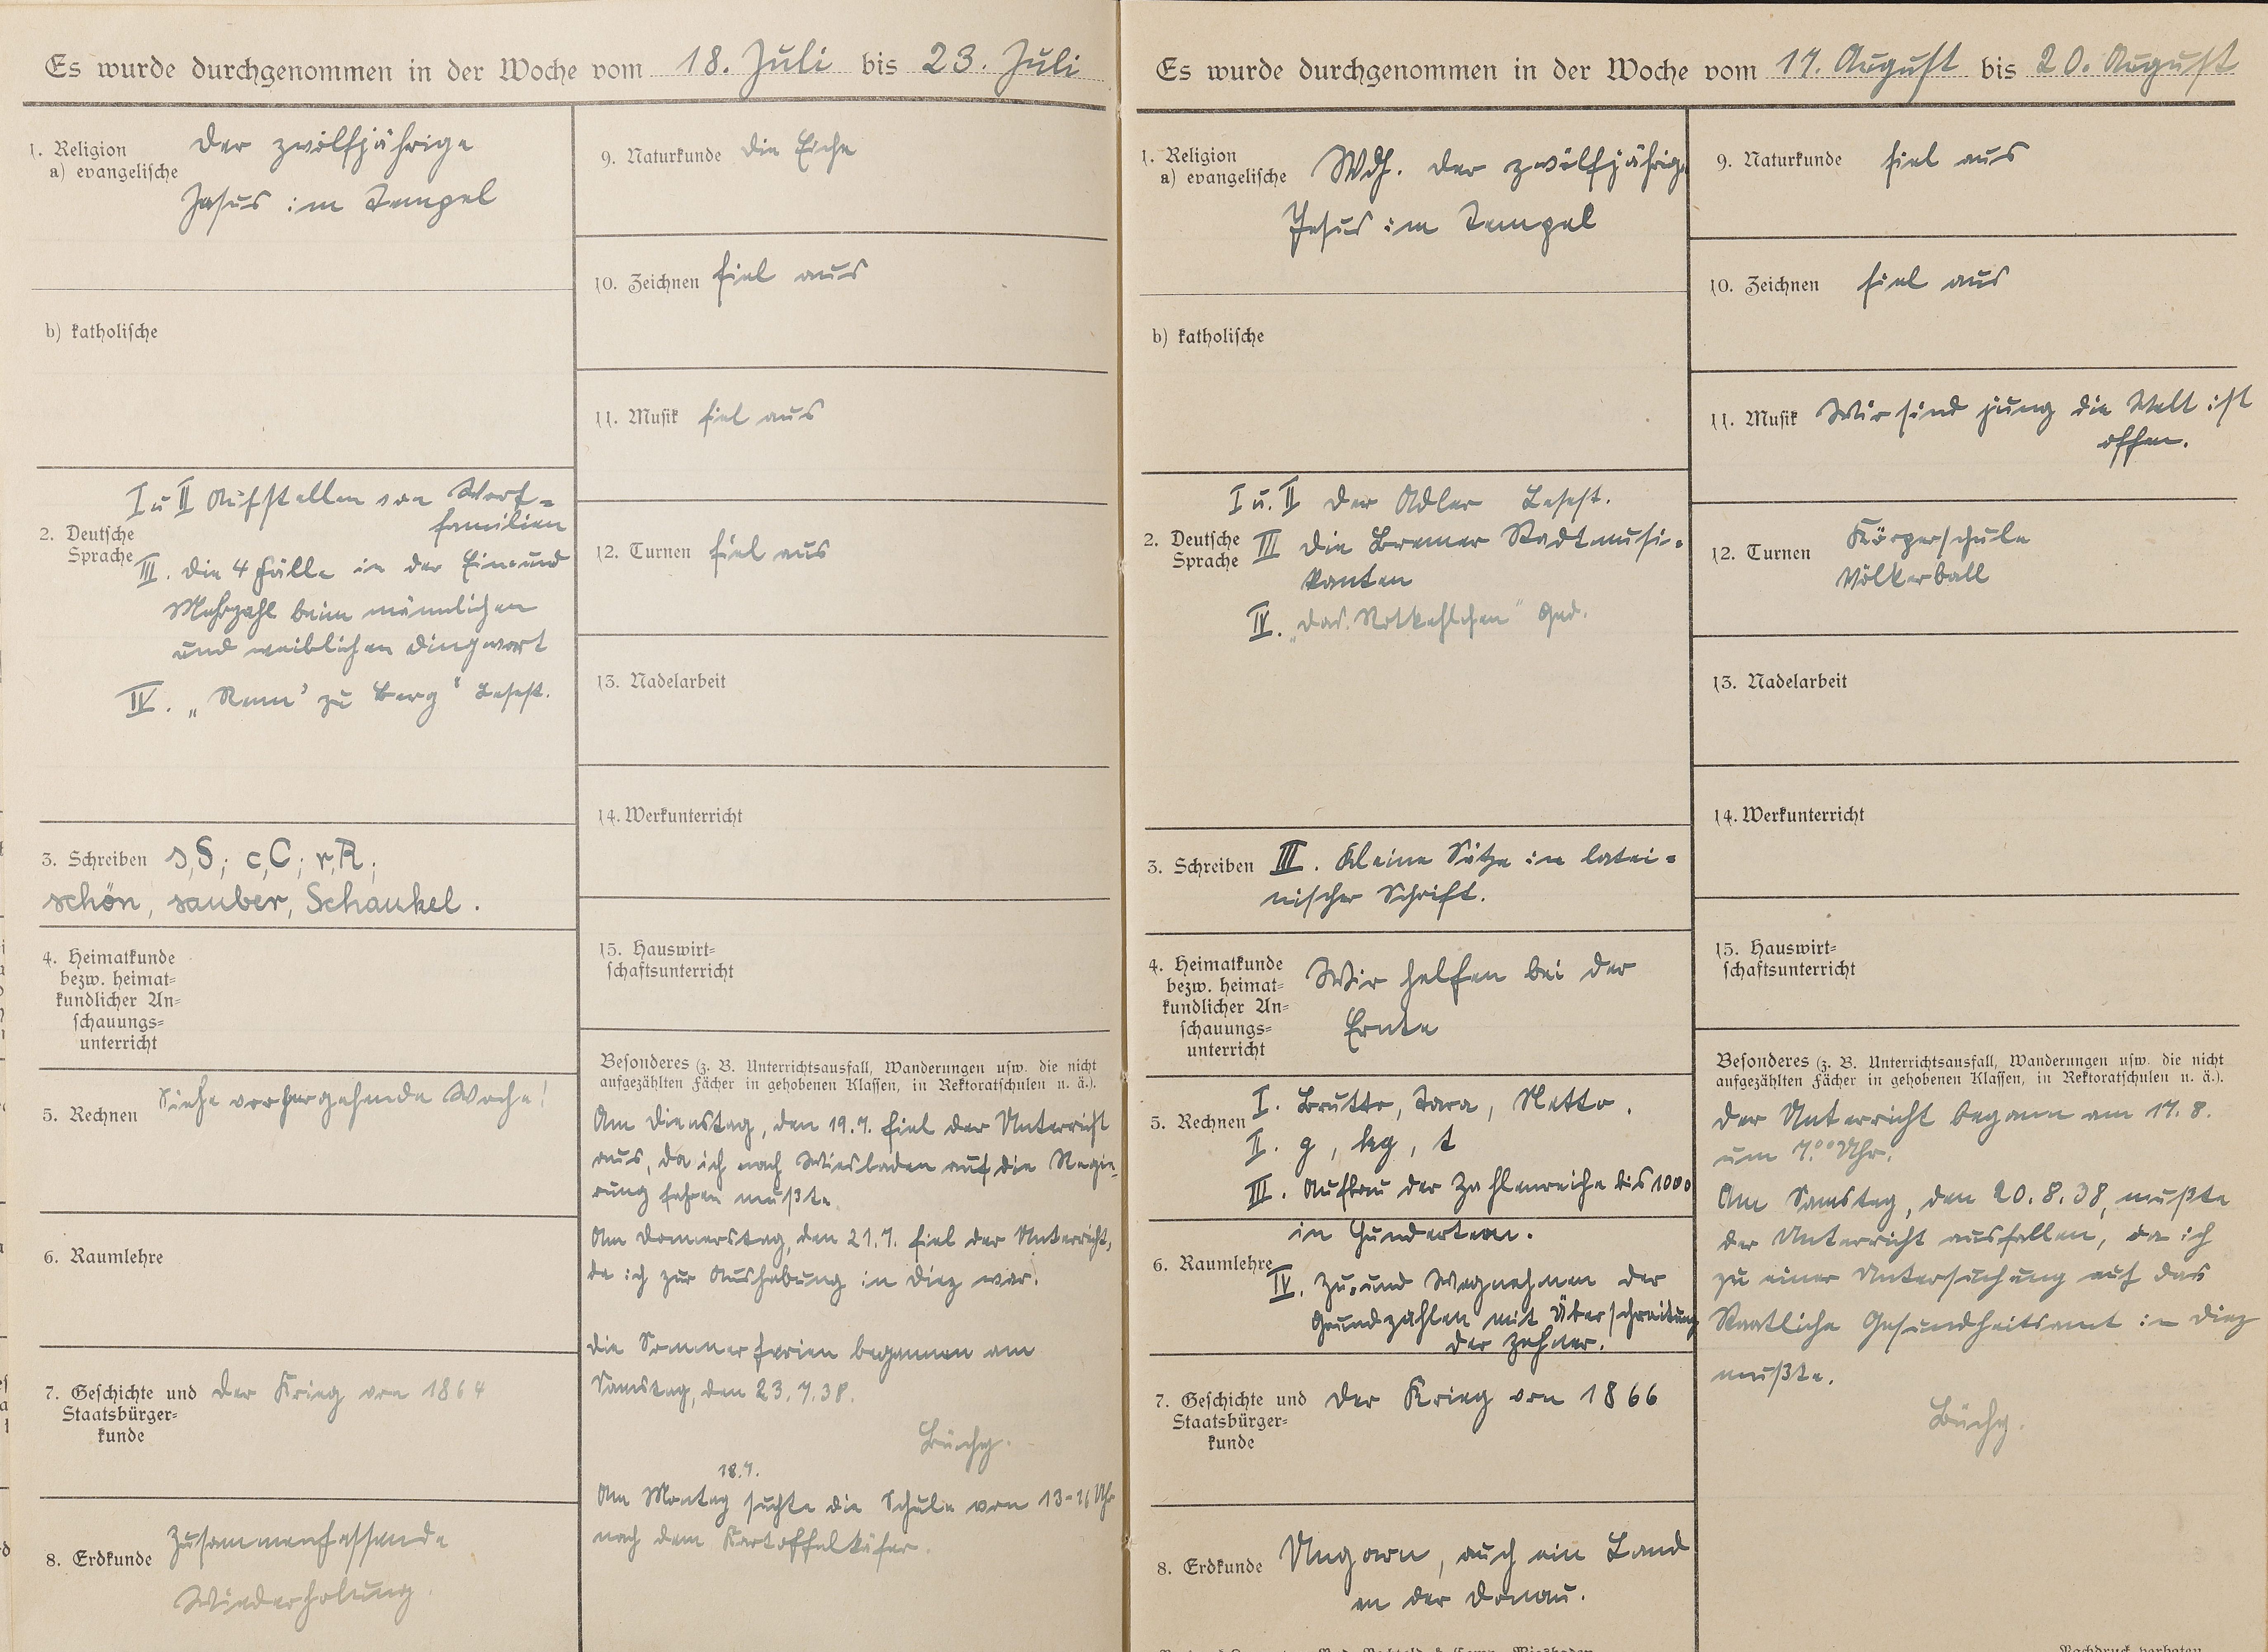 Es wurde durchgenommen in der Woche vom 18. Juli bis 23. Juli
1. Religion
a) evangelische
Der zwölfjährige
Jesus im Tempel
b) katholische
2. Deutsche
Sprache
I u II Aufstellen von Wort-
familien
III. Die 4 Fälle in der Ein= und
Mehrzahl beim männlichen
und weiblichen Dingwort
IV. „Renn' zu Berg" Lesest.
3. Schreiben s,S; c,C; r,R;
schön, sauber, Schaukel.
4. Heimatkunde
bezw. heimat=
kundlicher An=
schauungs=
unterricht
5. Rechnen Siehe vorhergehende Woche!
6. Raumlehre
7. Geschichte und
Staatsbürger=
kunde
Der Krieg von 1864
8. Erdkunde Zusammenfassende
Wiederholung.
9. Naturkunde Die Eiche
10. Zeichnen fiel aus
11. Musik fiel aus
12. Turnen fiel aus
13. Nadelarbeit
14. Werkunterricht
15. Hauswirt=
schaftsunterricht
Besonderes (z. B. Unterrichtsausfall, Wanderungen usw. die nicht
aufgezählten Fächer in gehobenen Klassen, in Rektoratschulen u. ä.).
Am Dienstag, den 19.7. fiel der Unterricht
aus, da ich nach Wiesbaden auf die Regie-
rung fahren mußte.
Am Donnerstag, den 21.7. fiel der Unterricht,
da ich zur Aushebung in Diez war.
Die Sommerferien begannen am
Samstag, den 23.7.38.
Büchg.
18.7.
Am Montag suchte die Schule von 13-16 Uhr
nach dem Kartoffelkäfer.
Es wurde durchgenommen in der Woche vom 17. August bis 20. August
1. Religion
a) evangelische
Wdh. Der zwölfjährige
Jesus im Tempel
b) katholische
2. Deutsche
Sprache
I u. II Der Adler Lesest.
III Die Bremer Stadtmusi=
kanten
IV. „Das Rotkehlchen" Ged.
3. Schreiben III. Kleine Sätze in latei=
nischer Schrift.
4. Heimatkunde
bezw. heimat=
kundlicher An=
schauungs=
unterricht
Wir helfen bei der
Ernte
5. Rechnen I. Brutto, Tara, Netto.
II. g, kg, t
III. Aufbau der Zahlenreihe bis 1000
in Hundertern.
6. Raumlehre
IV. Zu= und Wegnehmen der
Grundzahlen mit Überschreitung
der Zehner.
7. Geschichte und
Staatsbürger=
kunde
Der Krieg von 1866
8. Erdkunde Ungarn, auch ein Land
an der Donau.
9. Naturkunde fiel aus
10. Zeichnen fiel aus
11. Musik Wir sind jung die Welt ist
offen.
12. Turnen Körperschule
Völkerball
13. Nadelarbeit
14. Werkunterricht
15. Hauswirt=
schaftsunterricht
Besonderes (z. B. Unterrichtsausfall, Wanderungen usw. die nicht
aufgezählten Fächer in gehobenen Klassen, in Rektoratschulen u. ä.).
Der Unterricht begann am 17.8.
um 7.00 Uhr.
Am Samstag, den 20.8.38, mußte
der Unterricht ausfallen, da ich
zu einer Untersuchung auf das
Staatliche Gesundheitsamt in Diez
mußte.
Büchg.
Nachdruck verboten